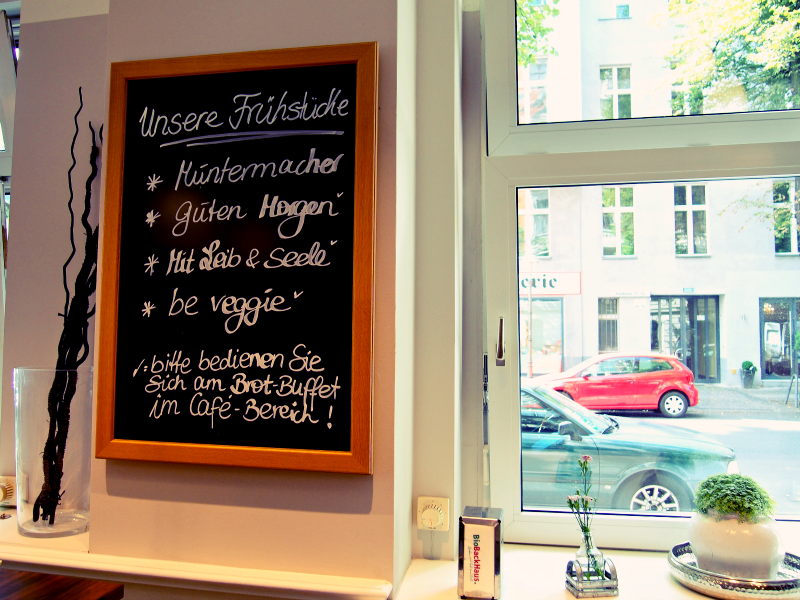 Unsere Frühstücke
* Muntermacher
* Guten Morgen ✓
* Mit Leib & Seele ✓
* be veggie ✓
✓: bitte bedienen Sie
sich am Brot-Buffet
im Café-Bereich!
erie
BioBackHaus.